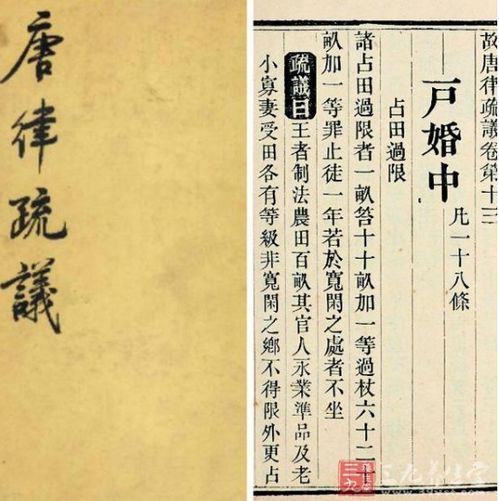 唐律疏議
故唐律疏議卷第十三
戶婚中 凡一十八條
占田過限
諸占田過限者一畝笞十十畝加一等過杖六十二
畝加一等罪止徒一年若於寬閑之處者不坐
疏議曰王者制法農田百畝其官人永業準品及老
小寡妻受田各有等級非寬閑之鄉不得限外更占
三九养生堂